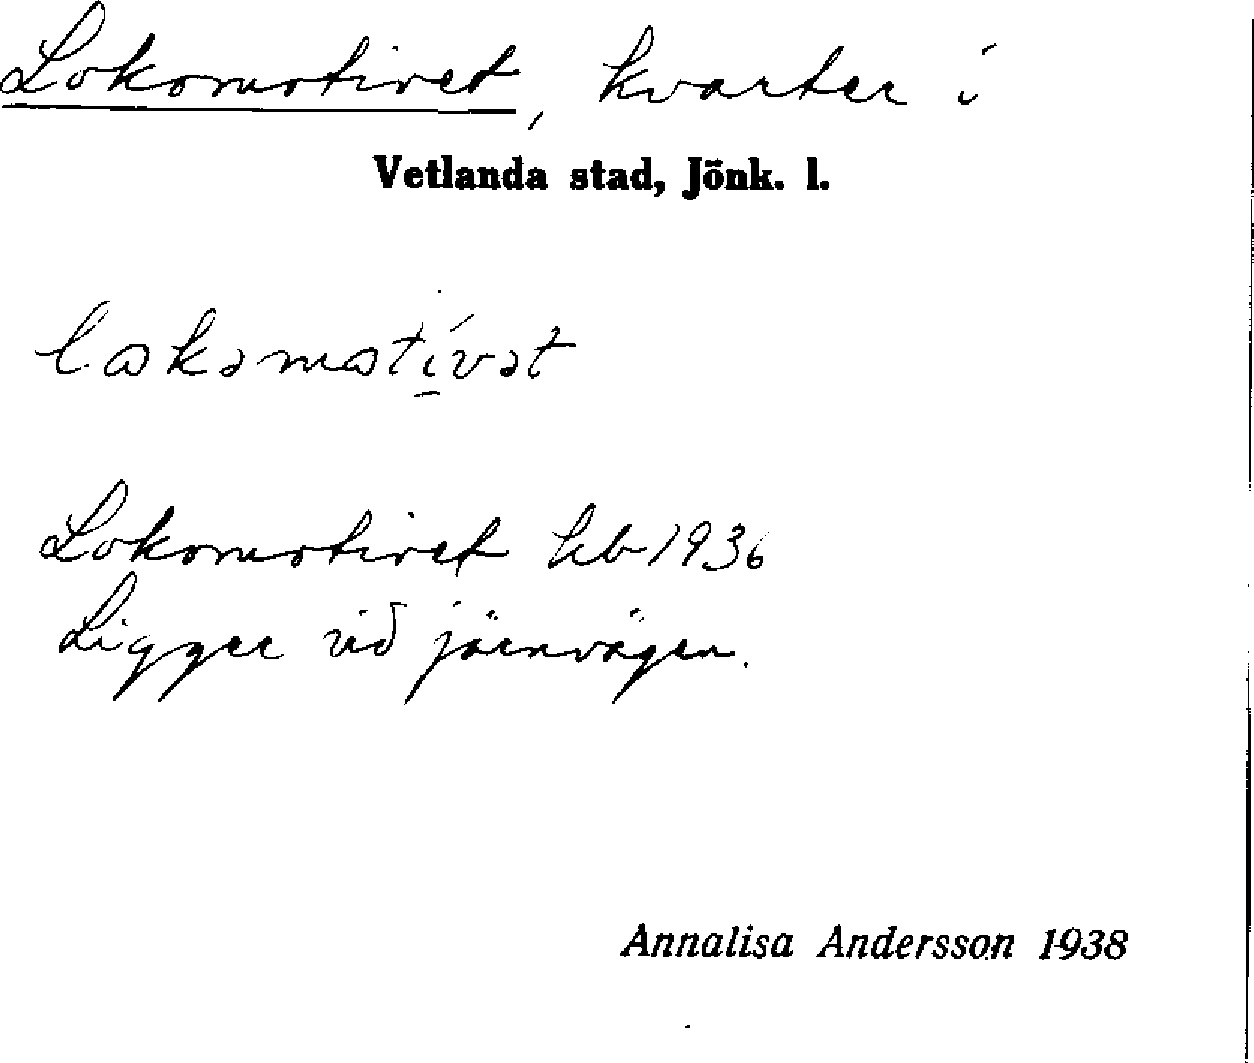 Lokomotivet, kvarter i
Vetlanda stad, Jönk. l.
Lokomotivet hb 1936
Ligger vid järnvägen.
Annalisa Andersson 1938